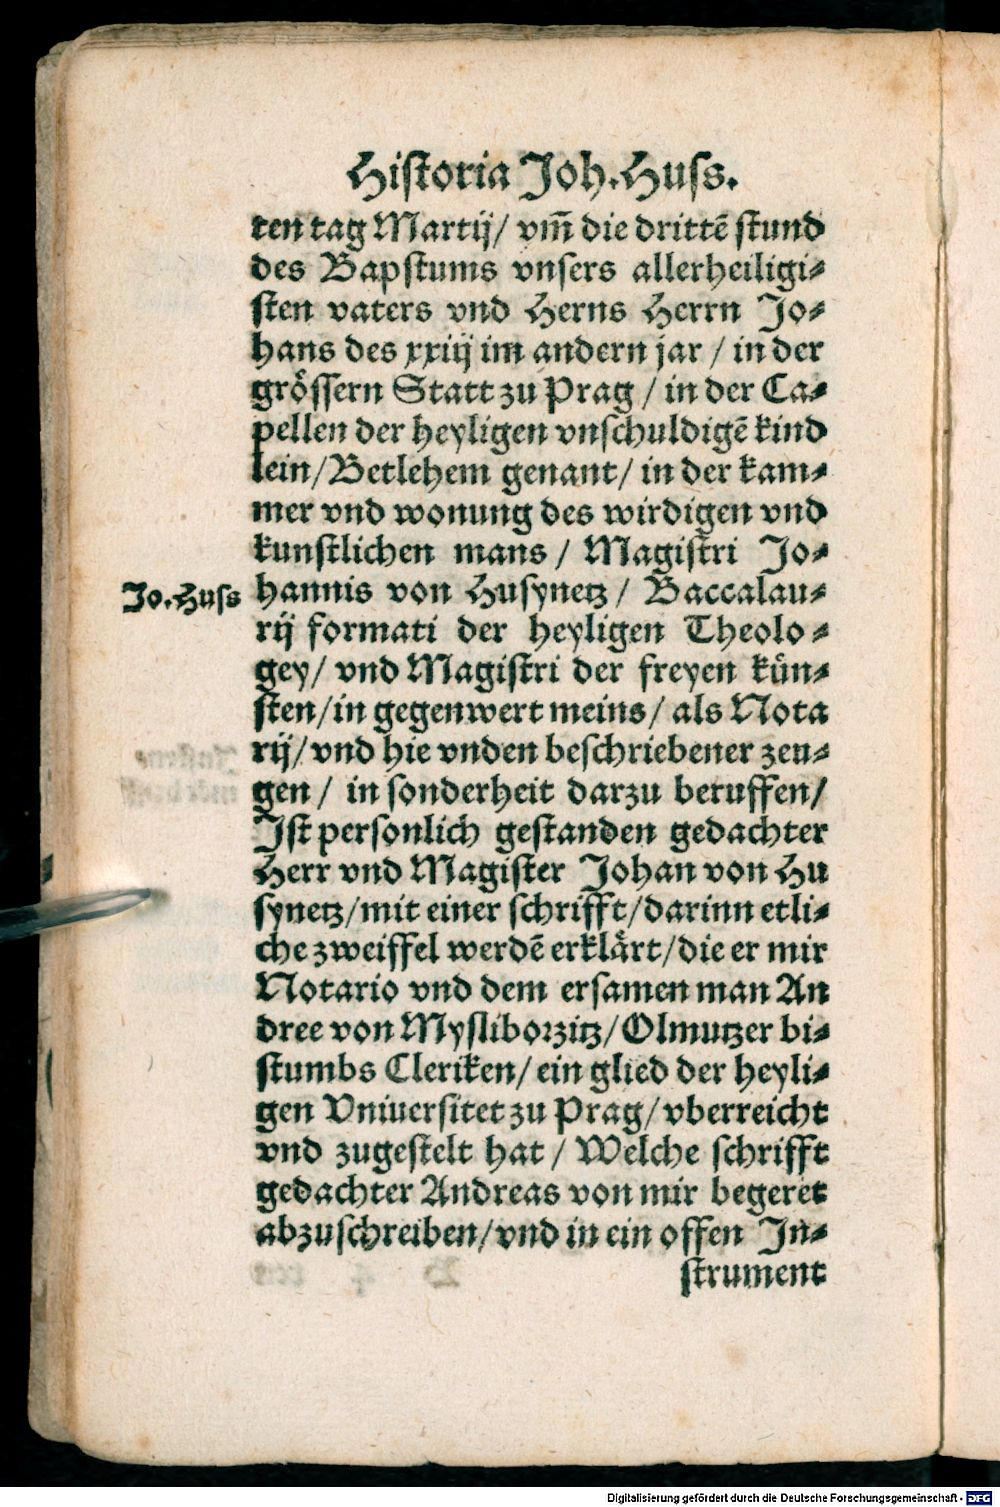 Historia Joh. Huss.
ten tag Martij/ vm̃ die drittē stund
des Bapstums vnsers allerheiligi⸗
sten vaters vnd Herns Herrn Jo⸗
hans des xxiij im andern jar / in der
grössern Statt zu Prag / in der Ca⸗
pellen der heyligen vnschuldigē kind
lein/ Betlehem genant/ in der kam⸗
mer vnd wonung des wirdigen vnd
kunstlichen mans / Magistri Jo⸗
Jo. Huss hannis von Husynetz / Baccalau⸗
rij formati der heyligen Theolo⸗
gey/ vnd Magistri der freyen kün⸗
sten/ in gegenwert meins/ als Nota
rij/ vnd hie vnden beschriebener zeu⸗
gen / in sonderheit darzu beruffen/
Ist personlich gestanden gedachter
Herr vnd Magister Johan von Hu
synetz/ mit einer schrifft/ darinn etli⸗
che zweiffel werdē erklärt/ die er mir
Notario vnd dem ersamen man An
dree von Mysliborzitz/ Olmutzer bi⸗
stumbs Cleriken/ ein glied der heyli⸗
gen Vniuersitet zu Prag/ vberreicht
vnd zugestelt hat / Welche schrifft
gedachter Andreas von mir begeret
abzuschreiben/ vnd in ein offen In⸗
strument
Digitalisierung gefördert durch die Deutsche Forschungsgemeinschaft - DFG